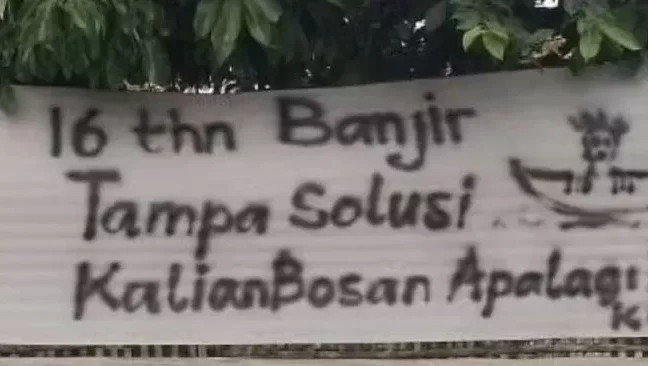 16 thn Banjir
Tampa Solusi
Kalian Bosan Apalagi